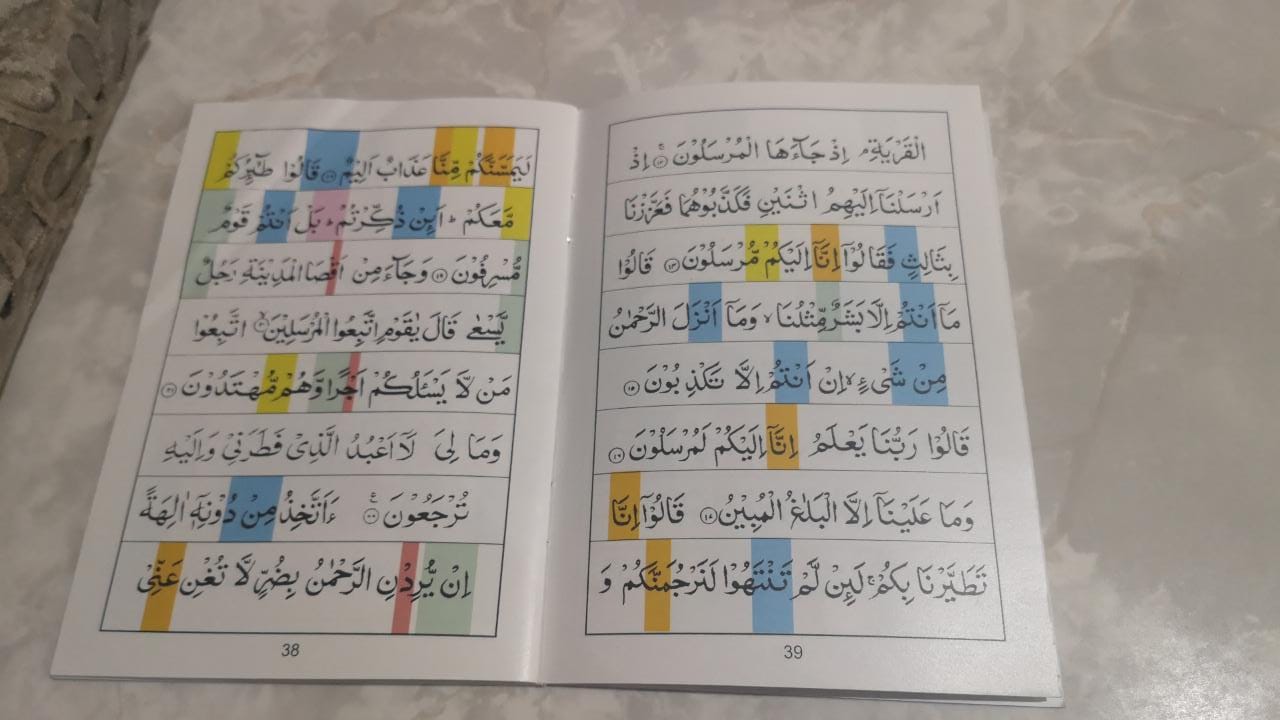 الْقَرْيَةِ ۘ اِذْ جَآءَهَا الْمُرْسَلُوْنَ ۚ ﴿۱۳﴾ اِذْ
اَرْسَلْنَاۤ اِلَيْهِمُ اثْنَيْنِ فَكَذَّبُوْهُمَا فَعَزَّزْنَا
بِثَالِثٍ فَقَالُوْۤا اِنَّاۤ اِلَيْكُمْ مُّرْسَلُوْنَ ﴿۱۴﴾ قَالُوْا
مَاۤ اَنْتُمْ اِلَّا بَشَرٌ مِّثْلُنَا ۙ وَمَاۤ اَنْزَلَ الرَّحْمٰنُ
مِنْ شَیْءٍ ۙ اِنْ اَنْتُمْ اِلَّا تَكْذِبُوْنَ ﴿۱۵﴾
قَالُوْا رَبُّنَا يَعْلَمُ اِنَّاۤ اِلَيْكُمْ لَمُرْسَلُوْنَ ﴿۱۶﴾
وَمَا عَلَيْنَاۤ اِلَّا الْبَلٰغُ الْمُبِيْنُ ﴿۱۷﴾ قَالُوْۤا اِنَّا
تَطَيَّرْنَا بِكُمْ ۚ لَئِنْ لَّمْ تَنْتَهُوْا لَنَرْجُمَنَّكُمْ وَ
39
لَيَمَسَّنَّكُمْ مِّنَّا عَذَابٌ اَلِيْمٌ ﴿۱۸﴾ قَالُوْا طَآئِرُكُمْ
مَّعَكُمْ ؕ اَئِنْ ذُكِّرْتُمْ ؕ بَلْ اَنْتُمْ قَوْمٌ
مُّسْرِفُوْنَ ﴿۱۹﴾ وَجَآءَ مِنْ اَقْصَا الْمَدِيْنَةِ رَجُلٌ
يَّسْعٰى قَالَ يٰقَوْمِ اتَّبِعُوا الْمُرْسَلِيْنَ ۙ ﴿۲۰﴾ اتَّبِعُوْا
مَنْ لَّا يَسْـَٔلُكُمْ اَجْرًا وَّهُمْ مُّهْتَدُوْنَ ﴿۲۱﴾
وَمَا لِیَ لَاۤ اَعْبُدُ الَّذِیْ فَطَرَنِیْ وَاِلَيْهِ
تُرْجَعُوْنَ ﴿۲۲﴾ ءَاَتَّخِذُ مِنْ دُوْنِهٖۤ اٰلِهَةً
اِنْ يُّرِدْنِ الرَّحْمٰنُ بِضُرٍّ لَّا تُغْنِ عَنِّیْ
38